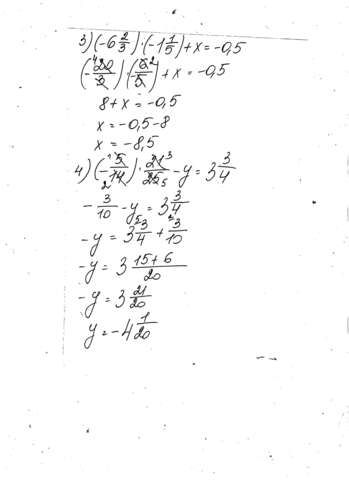 3) (-6 2/3) · (-1 1/5) + x = -0,5
(-20/3) · (-6/5) + x = -0,5
8 + x = -0,5
x = -0,5 - 8
x = -8,5
4) (-5/14) · 21/25 - y = 3 3/4
- 3/10 - y = 3 3/4
-y = 3 3/4 + 3/10
-y = 3 15+6/20
-y = 3 21/20
y = -4 1/20